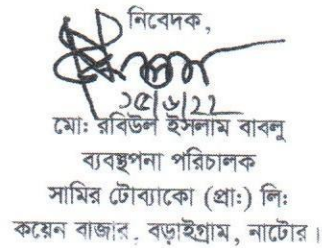 নিবেদক,
২৫/৬/২২
মো: রবিউল ইসলাম বাবলু
ব্যবস্থপনা পরিচালক
সামির টোব্যাকো (প্রা:) লি:
কয়েন বাজার, বড়াইগ্রাম, নাটোর।